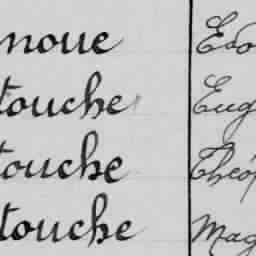 noue Edo
touche Eug
touche Théop
touche Mag